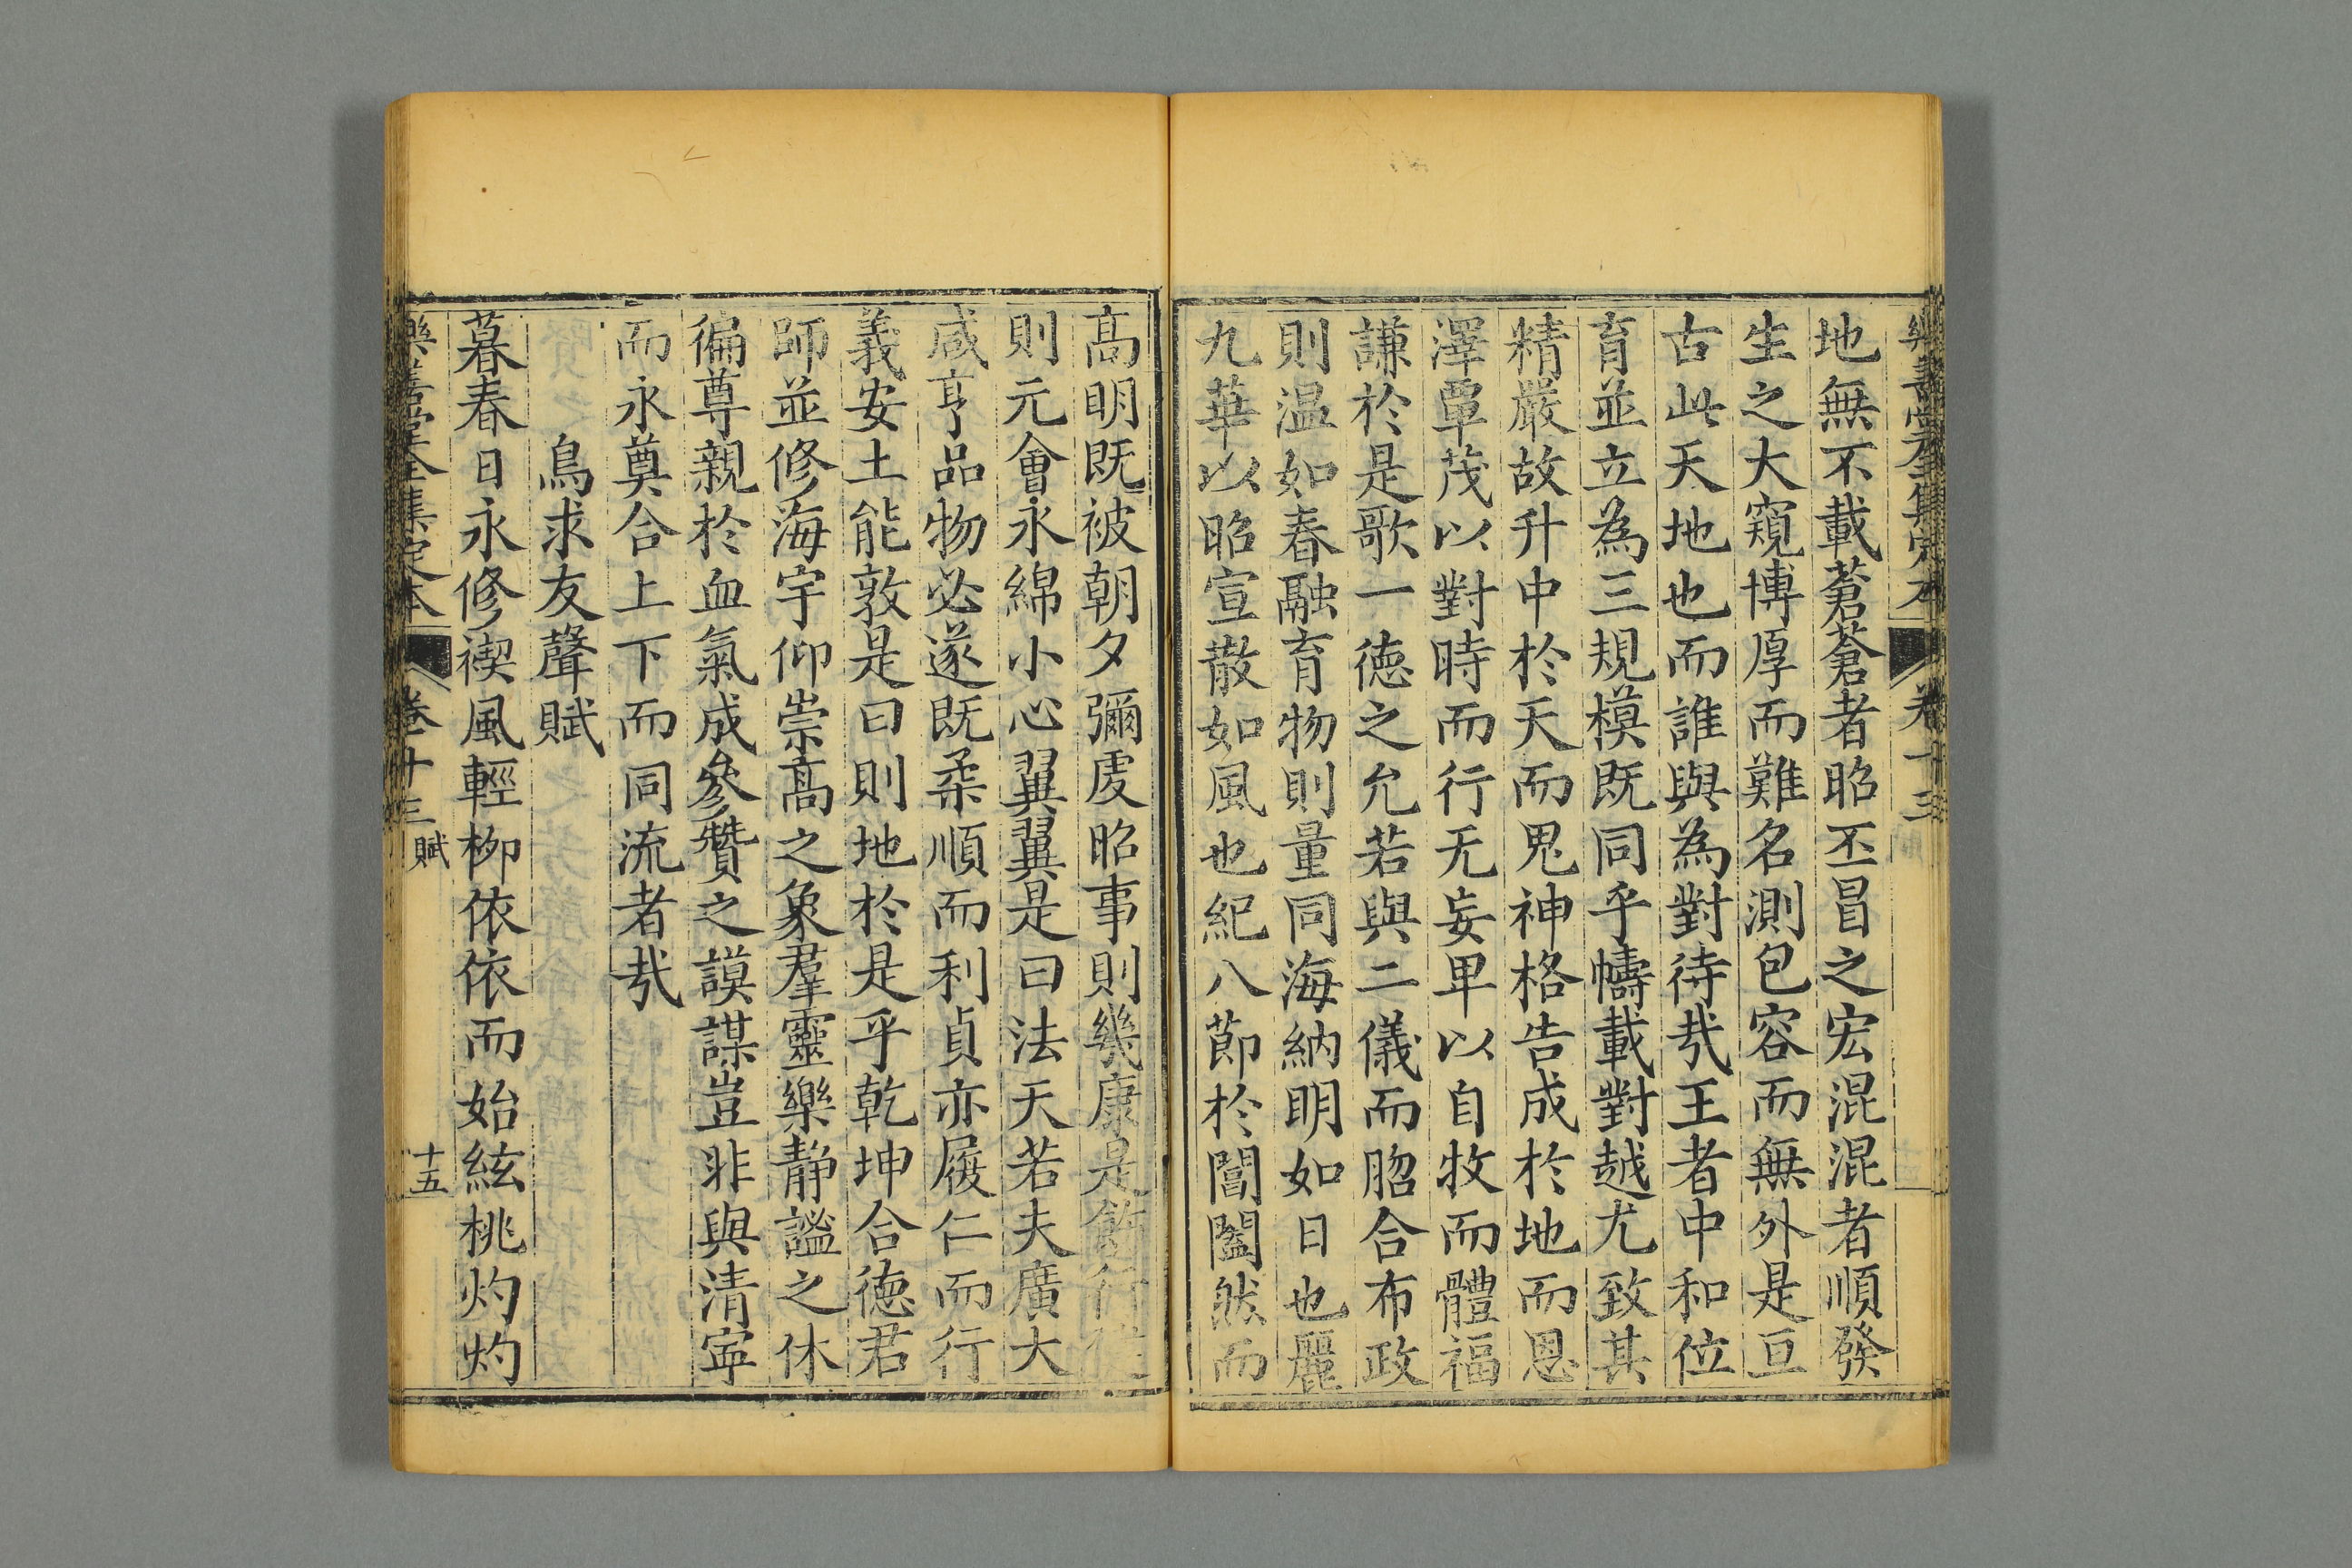 樂善堂全集定本 卷十三
地無不載蒼蒼者昭丕冒之宏混混者順發
生之大窺博厚而難名測包容而無外是亘
古此天地也而誰與為對待㢤王者中和位
育並立為三規模既同乎幬載對越尤致其
精嚴故升中於天而鬼神格告成於地而恩
澤覃茂以對時而行无妄卑以自牧而體福
謙於是歌一德之允若與二儀而脗合布政
則温如春融育物則量同海納明如日也麗
九華以昭宣散如風也紀八節於閶闔然而
髙明既被朝夕彌虔昭事則幾康是飭行
則元會永綿小心翼翼是曰法天若夫廣大
咸亨品物必遂既柔順而利貞亦履仁而行
義安土能敦是曰則地於是乎乾坤合德君
師並修海宇仰崇髙之象羣靈樂靜謐之休
徧尊親於血氣成參贊之謨謀豈非與清寧
而永奠合上下而同流者㢤
鳥求友聲賦
暮春日永修禊風輕栁依依而始絃桃灼灼
樂善堂全集定本 卷十三 賦 十五